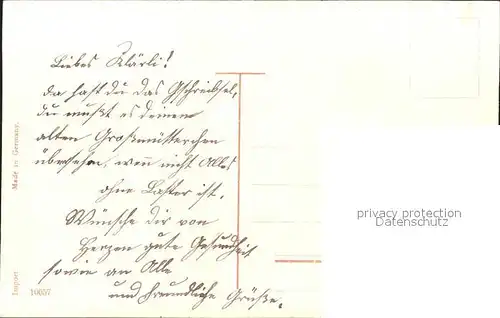 Liebes Klärli!
Da hast du das Gschreibsel,
du mußt es deinem
alten Großmütterchen
übersehen, wenn nicht Alles
ohne Laster ist.
Wünsche dir von
Herzen gute Gesundheit
sowie an Alle
und freundliche Grüße.
Made in Germany.
Import
10657
privacy protection
Datenschutz